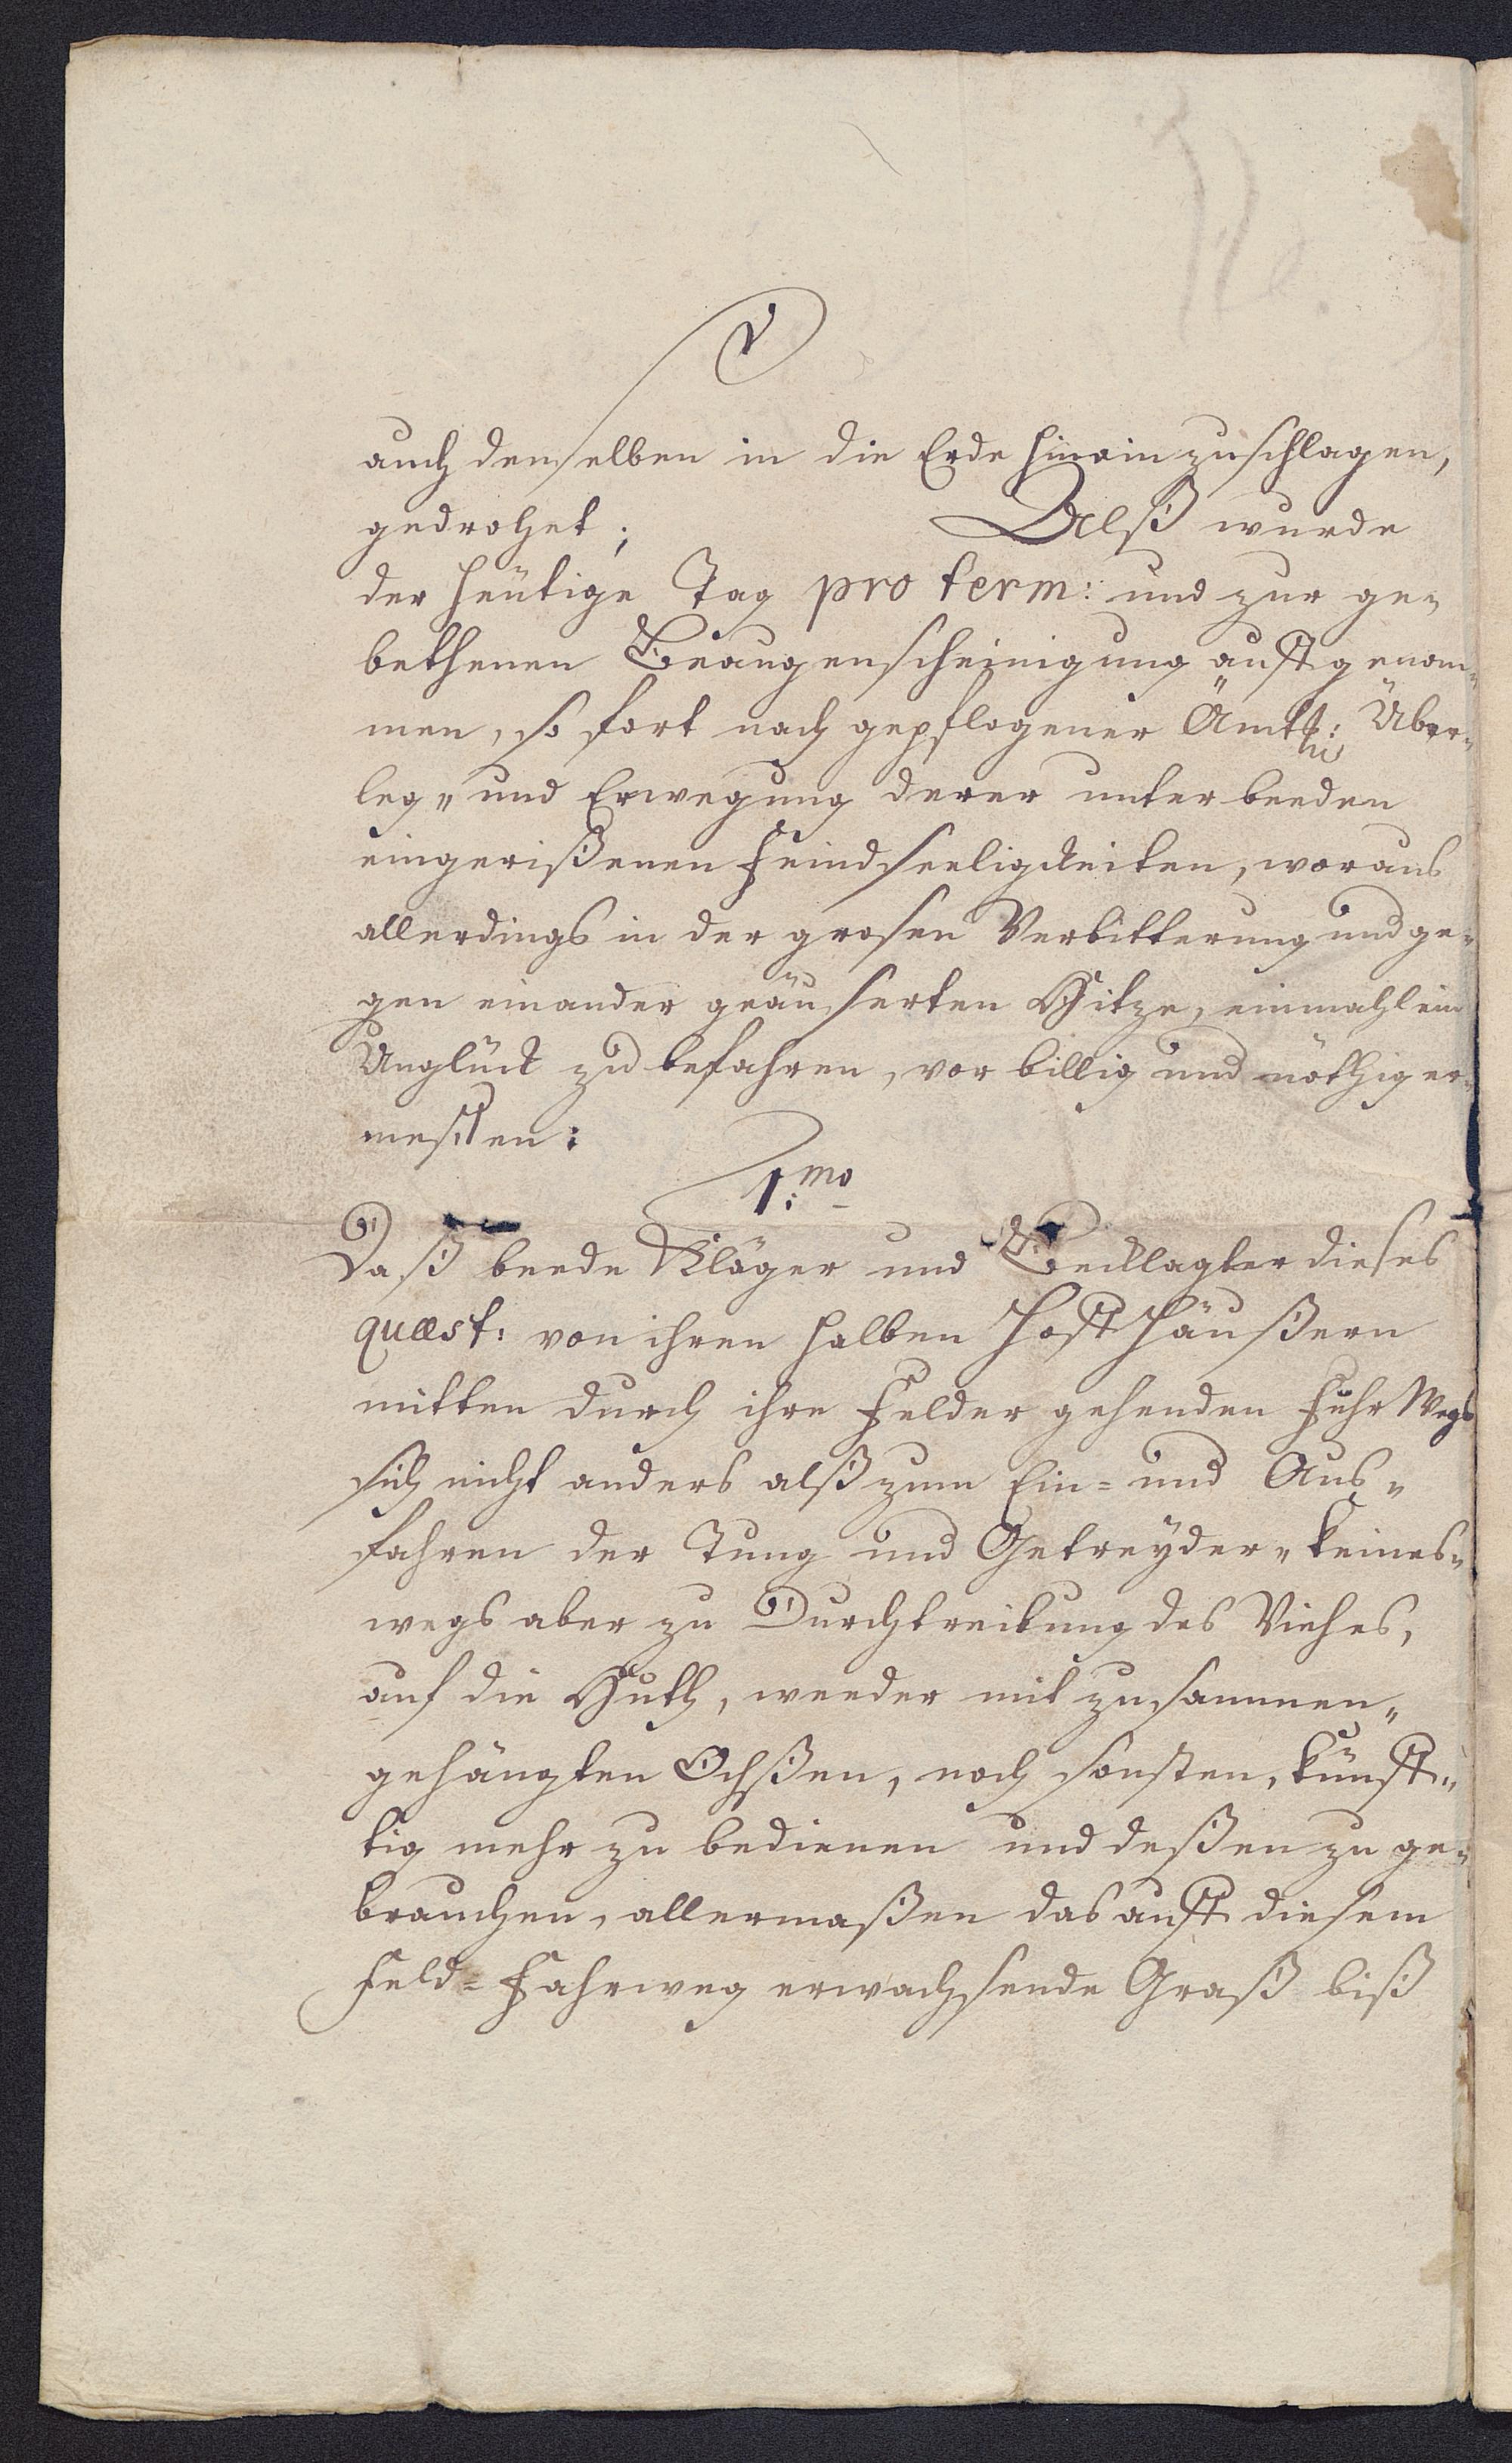 auch denselben in die Erde hinein zuschlagen,
gedrohet; Alß wurde
der heütige Tag pro term: und zur ge¬
bethenen Beaugenscheinigung aufft genom¬
men, so fort nach gepflogener Ämtl: Über¬
leg¬ und Erwegung derer unter beeden
eingerißenen Feindseeligkeiten, woraus
allerdings in der grosen Verbitterung und ge¬
gen einander geäuserten Hitze, einmahl ein
Unglück zu befahren, vor billig und nöthig er¬
meßen:
1:mo
Daß beede Kläger und Becklagter dieses
quæst: von ihren halben Hofft Häußern
mitten durch ihre Felder gehenden Fuhr Wegs
sich nicht anders alß zum Ein= und Aus¬
fahren der Tung und Getreyder¬ keines¬
wegs aber zu Durchtreibung des Viehes,
auf die Huth, weeder mit zusammen¬
gehängten Ochßen, noch sonsten, künff¬
tig mehr zu bedienen und deßen zu ge¬
brauchen, allermaßen das aufft diesem
Feld=Fahrweg erwachsende Graß biß